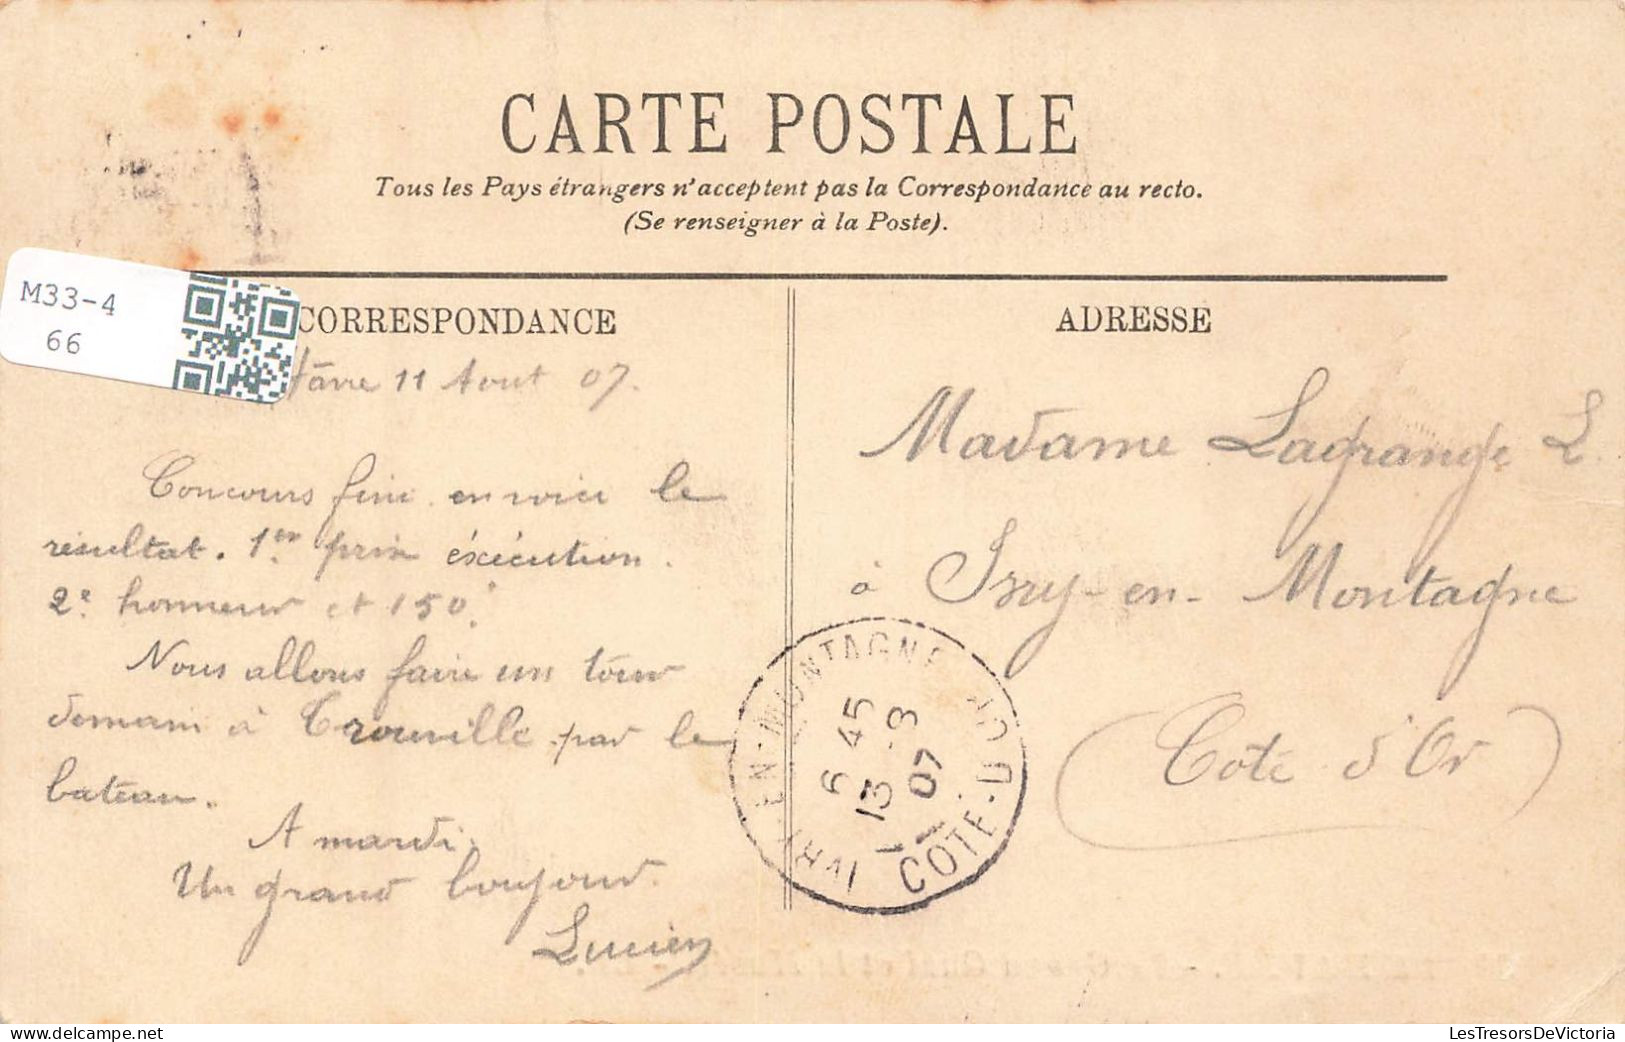 CARTE POSTALE
Tous les Pays étrangers n'acceptent pas la Correspondance au recto.
(Se renseigner à la Poste).
M33-4
66
CORRESPONDANCE
Hâvre 11 Aout 07.
Concours fini en voici le
résultat. 1er prix éxécution.
2e honneur et 150.
Nous allons faire un tour
demain à Trouville par le
bateau.
A mardi
Un grand boujour.
Lucien
ADRESSE
Madame Lagrange L.
à Ivry-en-Montagne
(Cote d'Or)
IVRY-EN-MONTAGNE
6 45
13 -8
07
COTE-D'OR
LesTresorsDeVictoria
www.delcampe.net